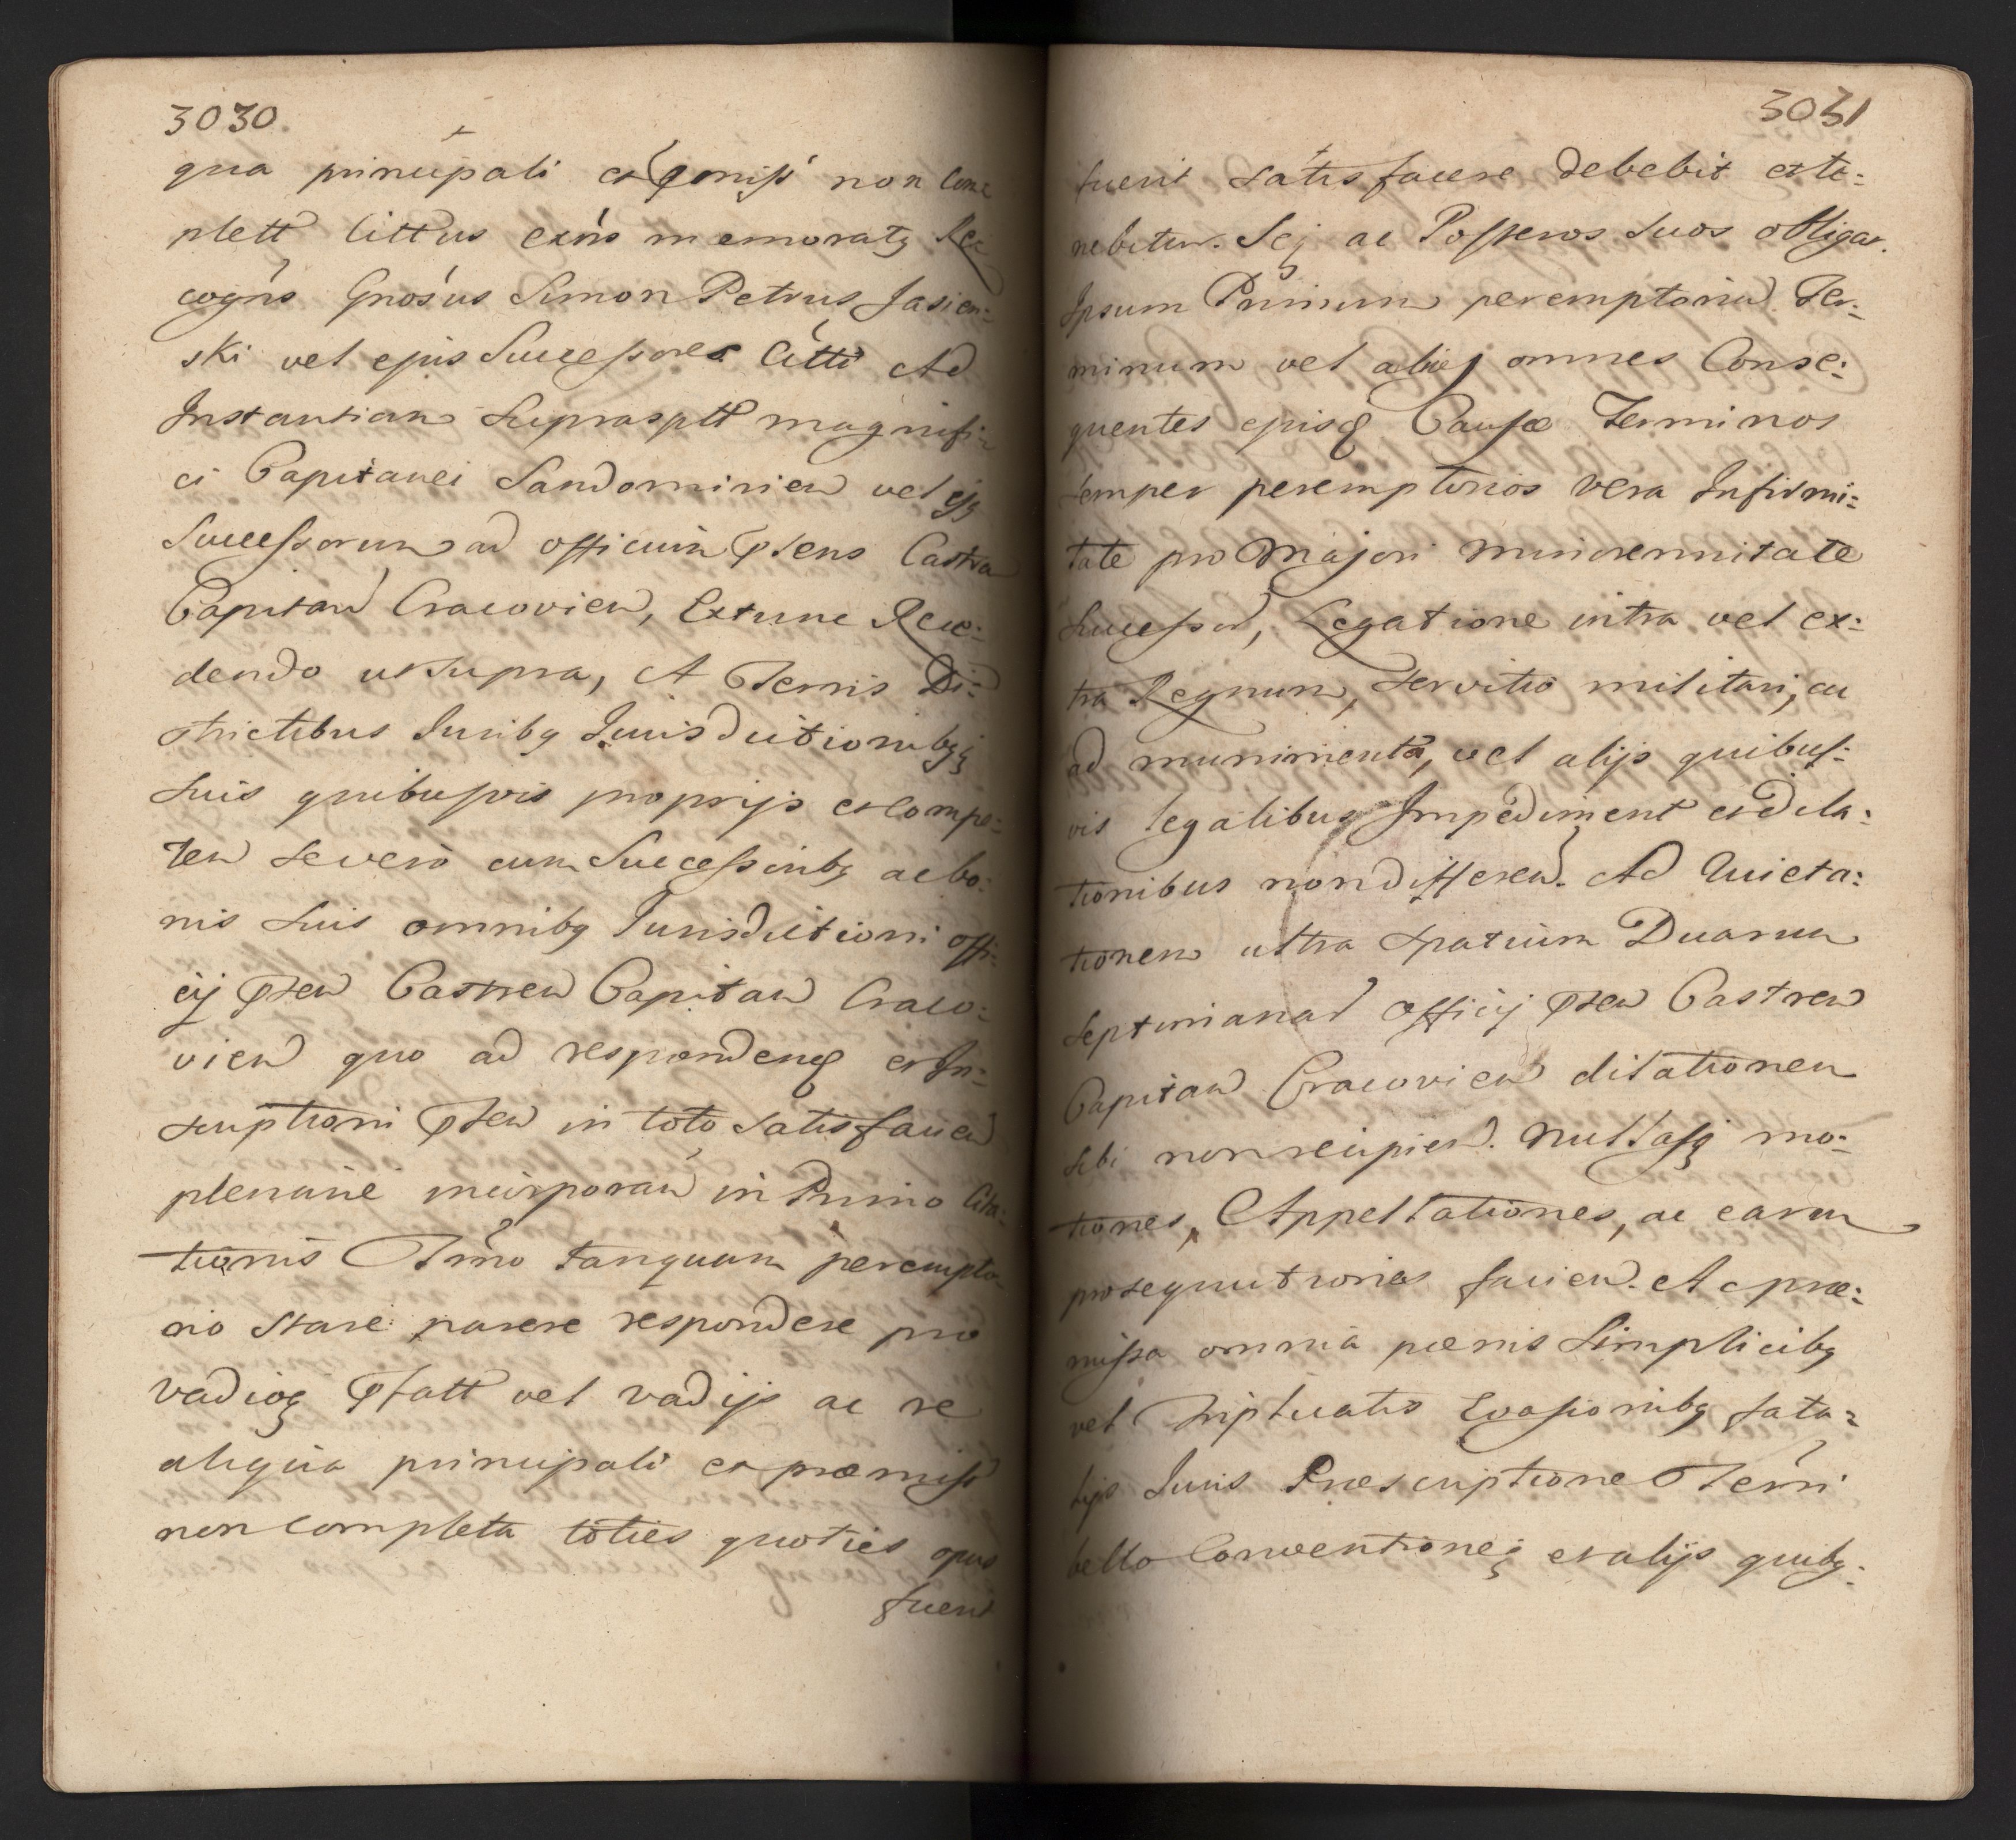 3030.
qua principali et pmiss non com
plett littus exns memoratq Re
cogns Gnosus Simon Petrus Jasien:
ski vel ejus Successores Citti Ad
Instantiam Suprasptt magnifi:
ci Capitanei Sandomirien vel ejq
Successorum ad officium psens Castra
Capitan Cracovien, Extunc Rece:
dendo ut supra, A Terris Di:
strictibus Juribq Jurisdictionibqq
Suis quibusvis proprijs et compe:
ten se vero cum Successoribq ac bo:
nis Suis omnibq Jurisdictioni offi:
cij psen Castren Capitan Craco:
vien quo ad respondenq et In:
scriptioni psen in toto satisfacien
plenarie incorporan in Primo Cita:
tionis Tmno tanquam perempto
rio Stare parere respondere pro
vadioq pfatt vel vadijs ac re
aliqua principali et præmiss
non completa toties quoties opus
fuerit
3031
fuerit satisfacere debebit et te:
nebitur. Sej ac Posteros Suos obligat.
Ipsum Primum peremptoriu Ter:
minum vel alios omnes Conse:
quentes ejusq Causæ Terminos
semper peremptorios vera Infirmi:
tate pro Majori minorennitate
Successor, Legatione intra vel ex:
tra Regnum, servitio militari, au
ad munimenta, vel alijs quibus:
vis legalibus Impediment et dila:
tionibus non differen. Ad Quieta:
tionem ultra spatium Duarum
septimanar officij psen Castren
Capitan Cracovien dilationem
sibi non recipien. Nullasq mo:
tiones, Appellationes, ac earum
prosequutiones facien. Ac præ:
missa omnia pœnis Simplicibq
vel Triplicatis Evasionibq fata:
lijs Juris Præscriptione Terri
bello Conventioneq et alijs quibq: